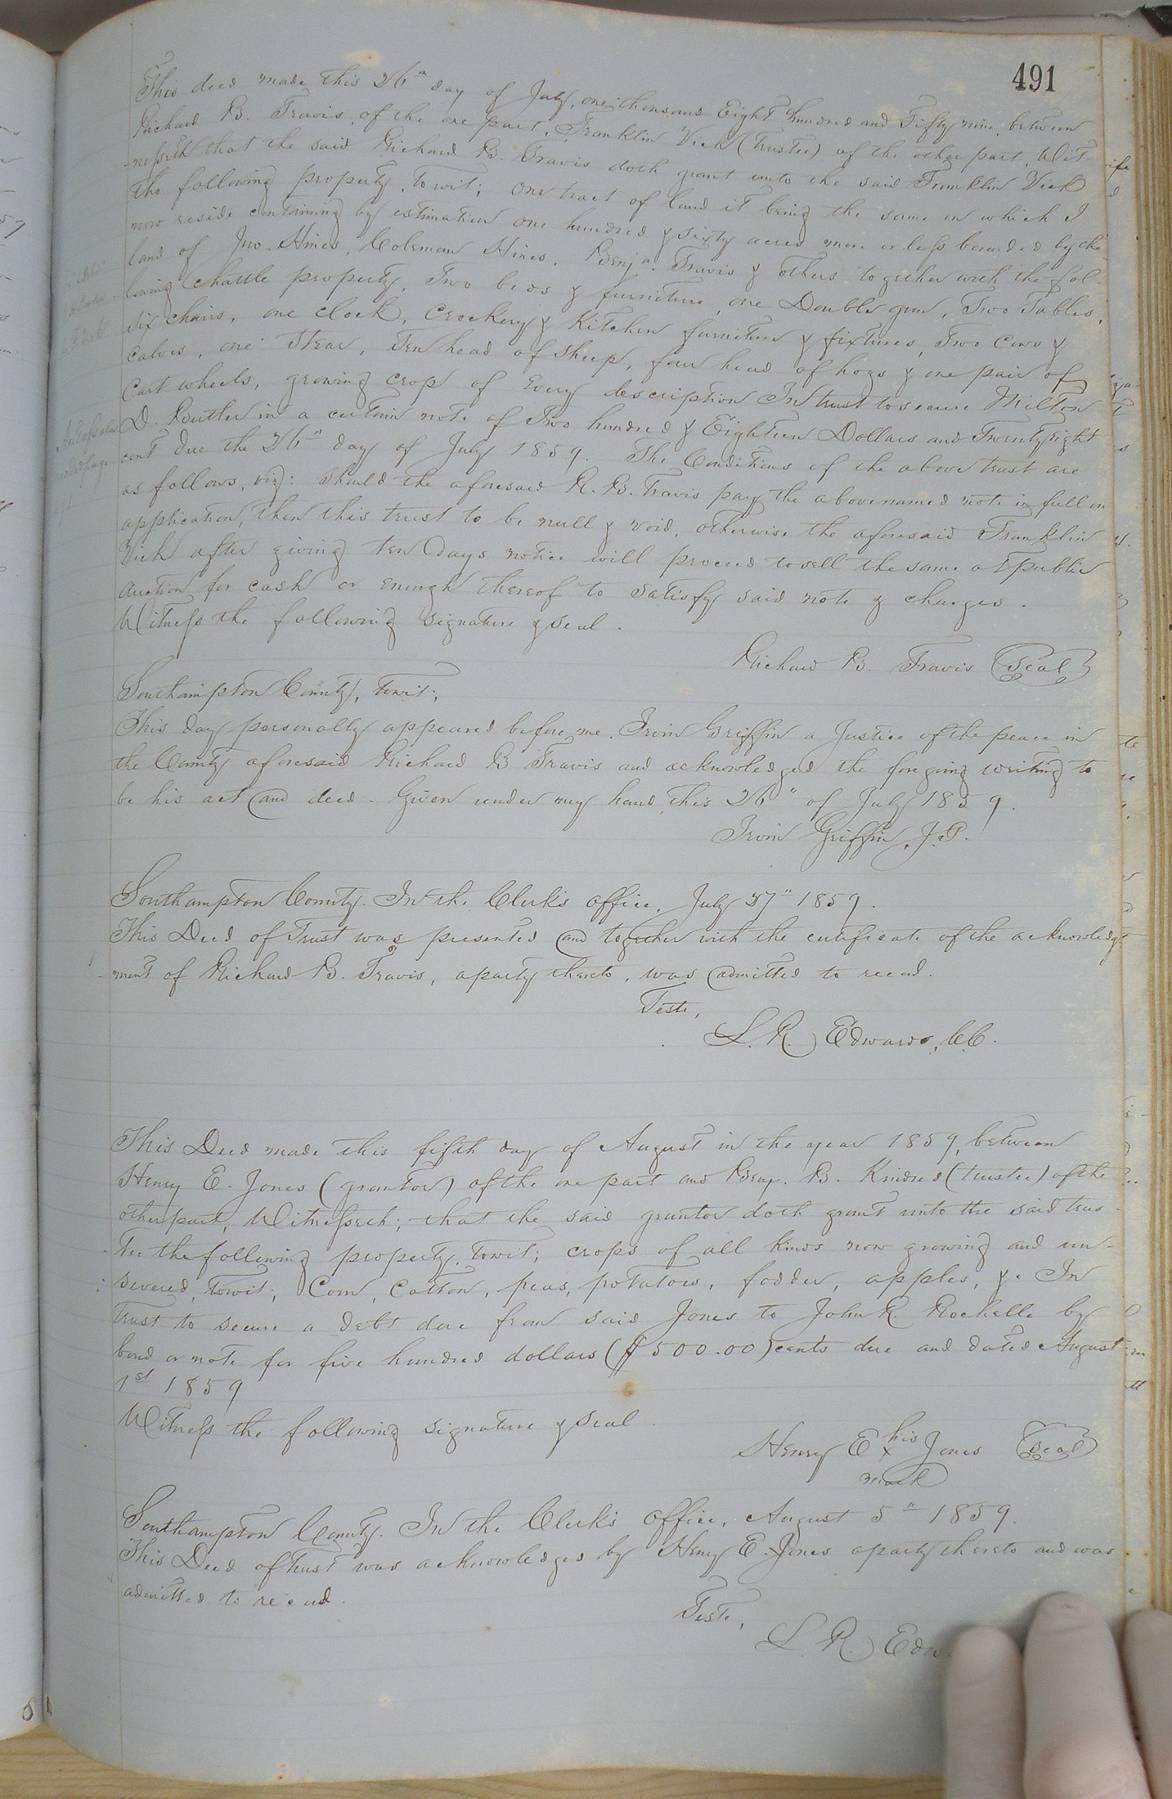 491
This deed made this 26th day of July, one thousand Eight hundred and Fifty nine, between
Richard B. Travis, of the one part, Franklin Vick (Trustee) of the other part, Wit-
nesseth that the said Richard B. Travis doth grant unto the said Franklin Vick
the following property, towit; One tract of land it being the same on which I
now reside containing by estimation one hundred & sixty acres more or less bounded by the
land of Jno. Hines, Coleman Hines, Benja. Travis & others together with the fol-
lowing chattle property, Two beds & furniture, one Double gun, Two Tables,
six chairs, one clock, Crockery & Kitchen furniture & fixtures, Two Cows &
calves, one Stear, Ten head of sheep, four head of hogs & one pair of
Cart wheels, growing crop of Every description In trust to secure Milton
D. Butler in a certain note of Two hundred & Eighteen Dollars and Twenty eight
cent due the 26th day of July 1859. The Conditions of the above trust are
as follows, viz: Should the aforesaid R. B. Travis pay the abovenamed note in full on
application, then this trust to be null & void, otherwise the aforesaid Franklin
Vick after giving ten days notice will proceed to sell the same at public
auction for cash or enough thereof to satisfy said note & charges.
Witness the following signature & seal.
Richard B. Travis (Seal)
Southampton County, towit;
This day personally appeared before me, Irvin Griffin a Justice of the peace in
the County aforesaid Richard B Travis and acknowledged the foregoing writing to
be his act and deed. Given under my hand this 26" of July 1859.
Irvin Griffin, J.P.
Southampton County. In the Clerk's office, July 27" 1859.
This Deed of Trust was presented and together with the certificate of the acknowledg-
ment of Richard B. Travis, a party thereto, was admitted to record.
Teste,
L. R. Edwards, CC.
This Deed made this fifth day of August in the year 1859, between
Henry E. Jones (grantor) of the one part and Benj. B. Kindred (trustee) of the
other part, Witnesseth; that the said grantor doth grant unto the said trus-
tee the following property, towit; crops of all kinds now growing and un-
severed, towit; Corn, Cotton, peas, potatoes, fodder, apples, &c In
trust to secure a debt due from said Jones to John R. Rochelle by
bond or note for five hundred dollars ($500.00) cents due and dated August
1st 1859
Witness the following signature & seal.
Henry E his x Jones (Seal)
mark
Southampton County. In the Clerk's office, August 5" 1859.
This Deed of trust was acknowledged by Henry E. Jones a party thereto and was
admitted to record.
Teste,
L. R. Edw